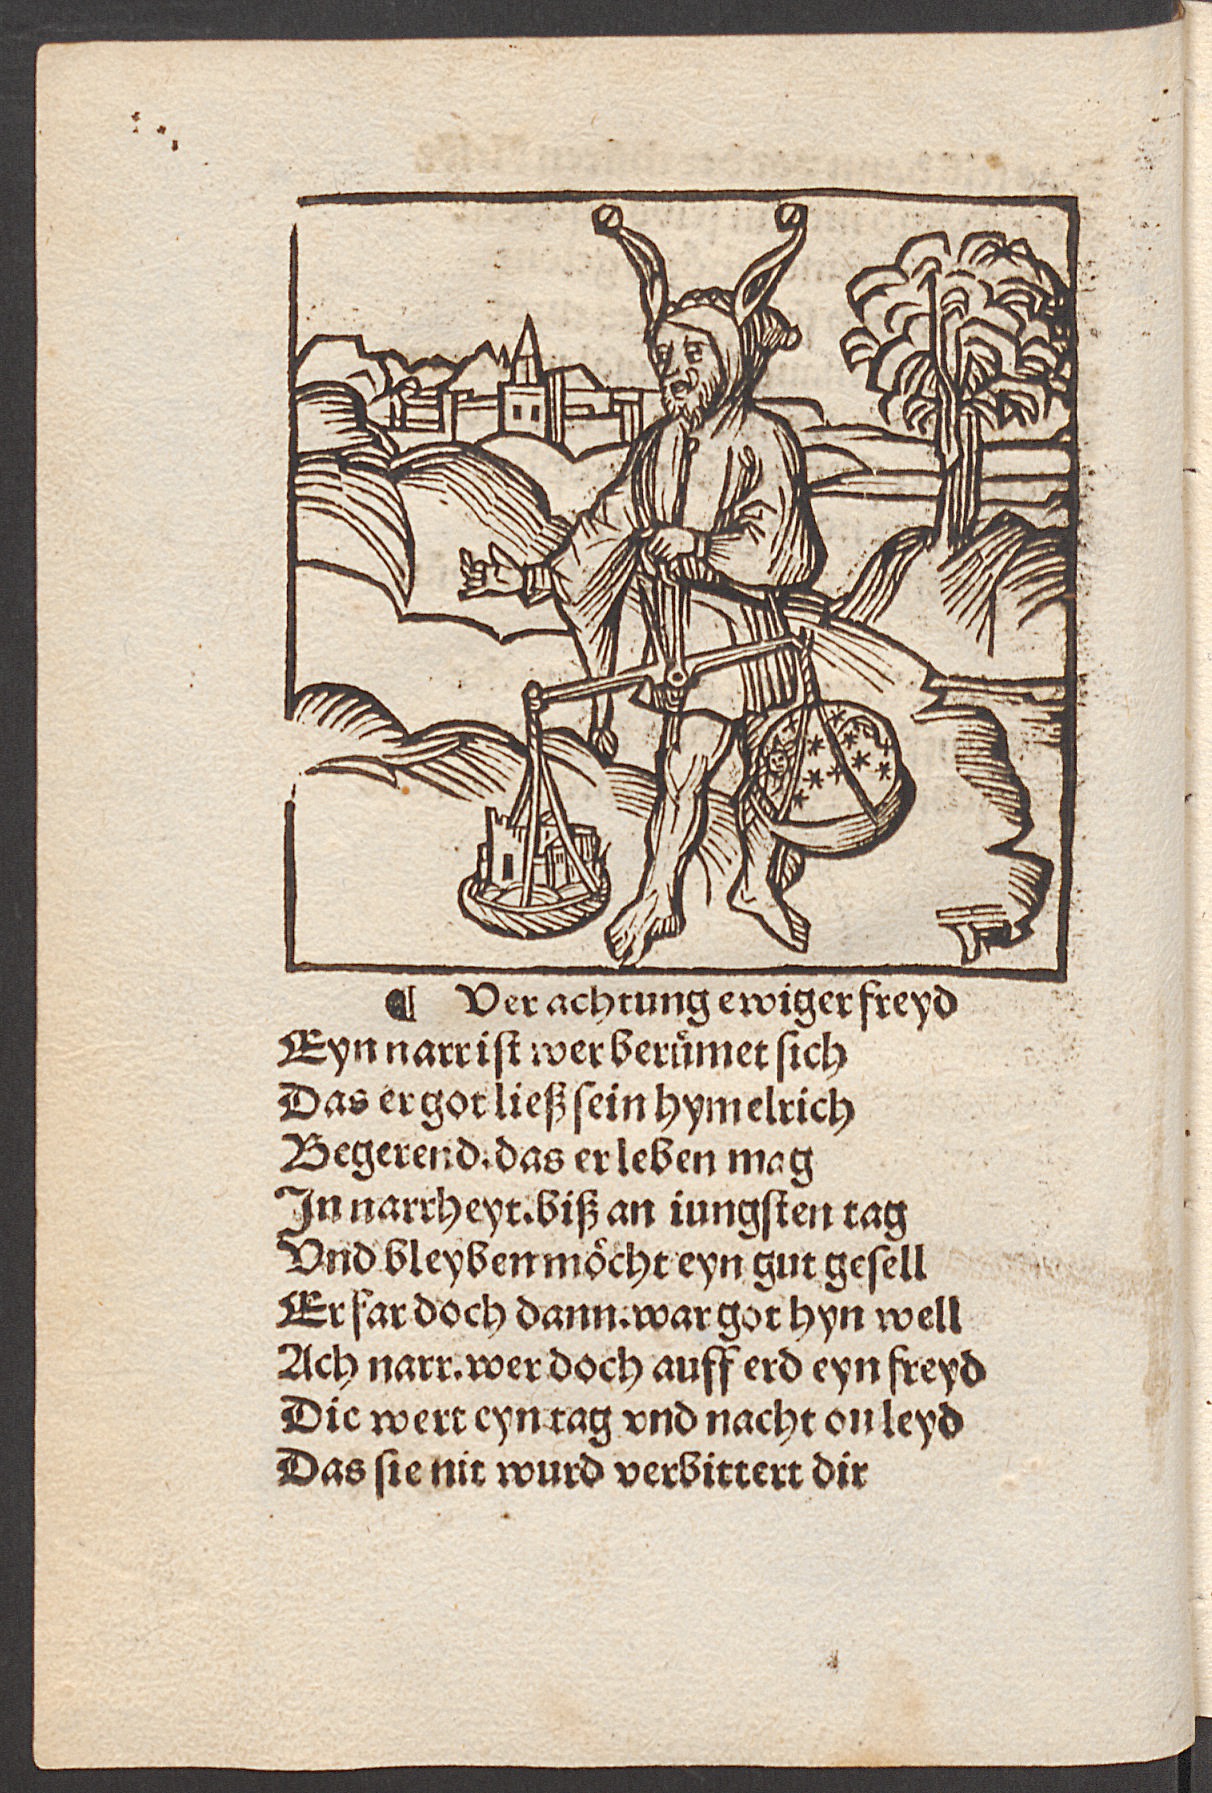 ¶ Verachtung ewiger freyd
Eyn narr ist wer berůmet sich
Das er got ließ sein hymelrich
Begerend. das er leben mag
In narrheyt. biß an iungsten tag
Vnd bleyben moͤcht eyn gut gesell
Er far doch dann. war got hyn well
Ach narr. wer doch auff erd eyn freyd
Die wert eyn tag vnd nacht on leyd
Das sie nit wurd verbittert dir